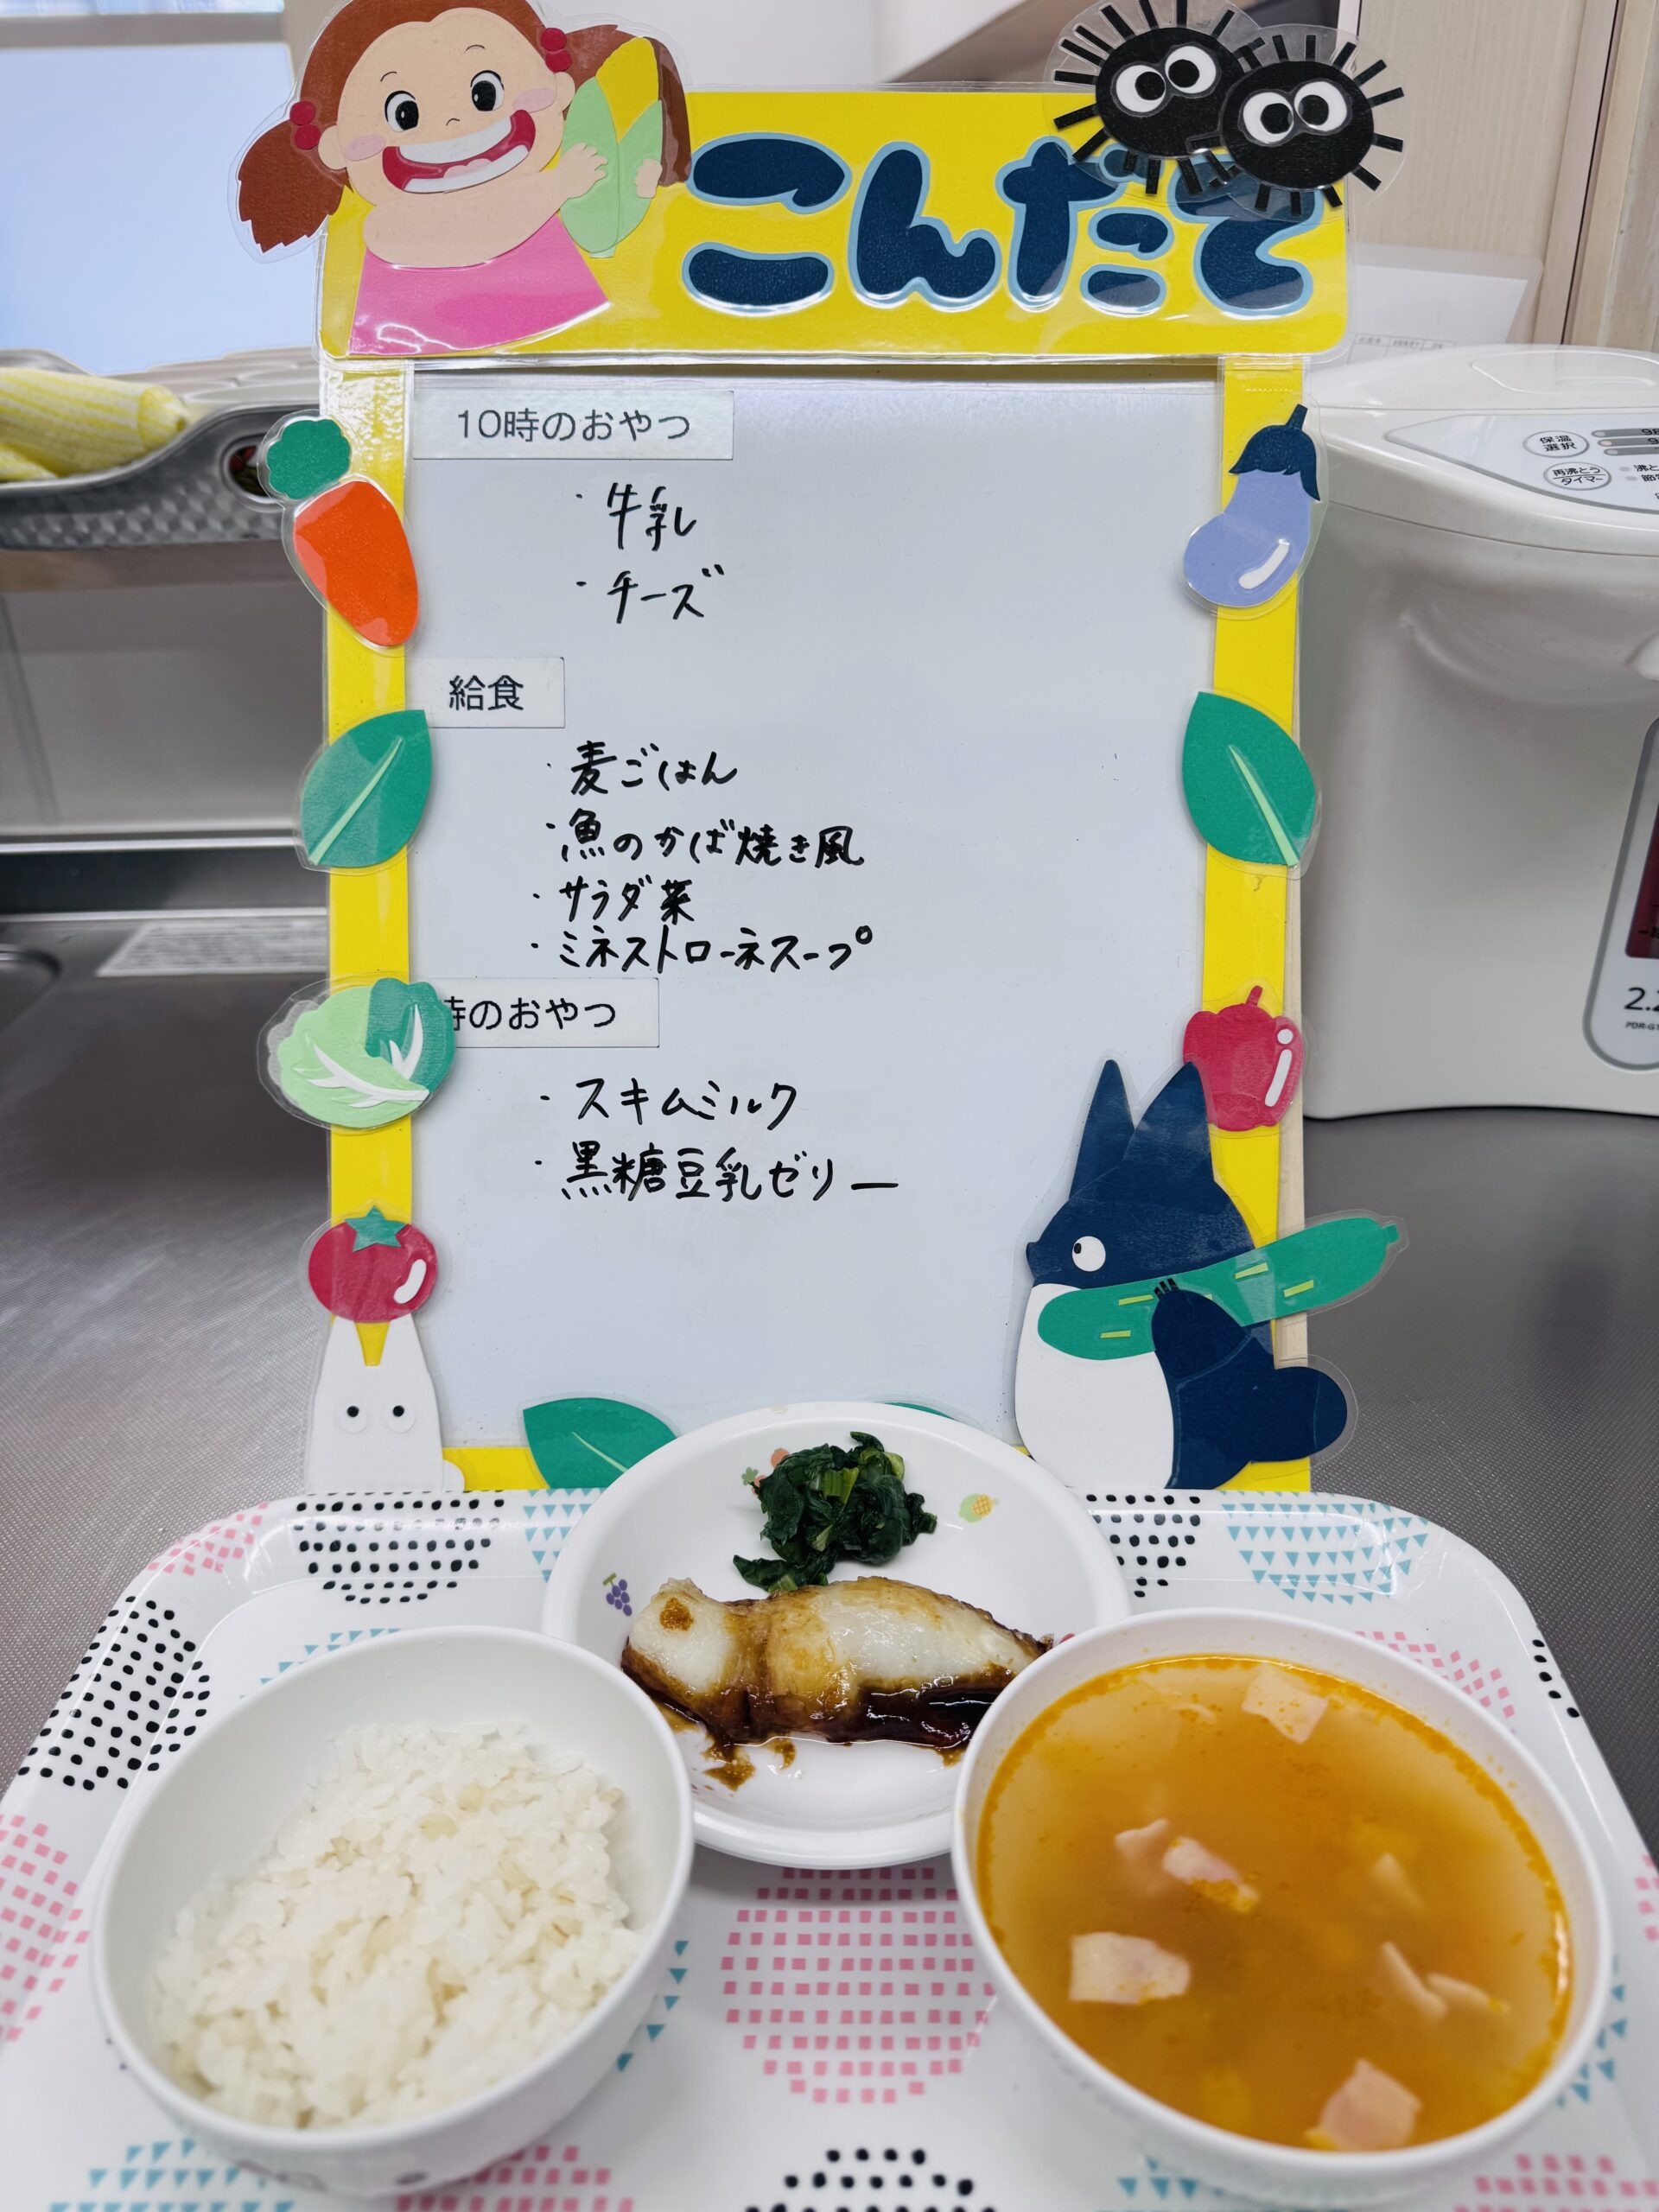 こんだて
10時のおやつ
・牛乳
・チーズ
給食
・麦ごはん
・魚のかば焼き風
・サラダ菜
・ミネストローネスープ
時のおやつ
・スキムミルク
・黒糖豆乳ゼリー
保温
選択
98
再沸とう
タイマー